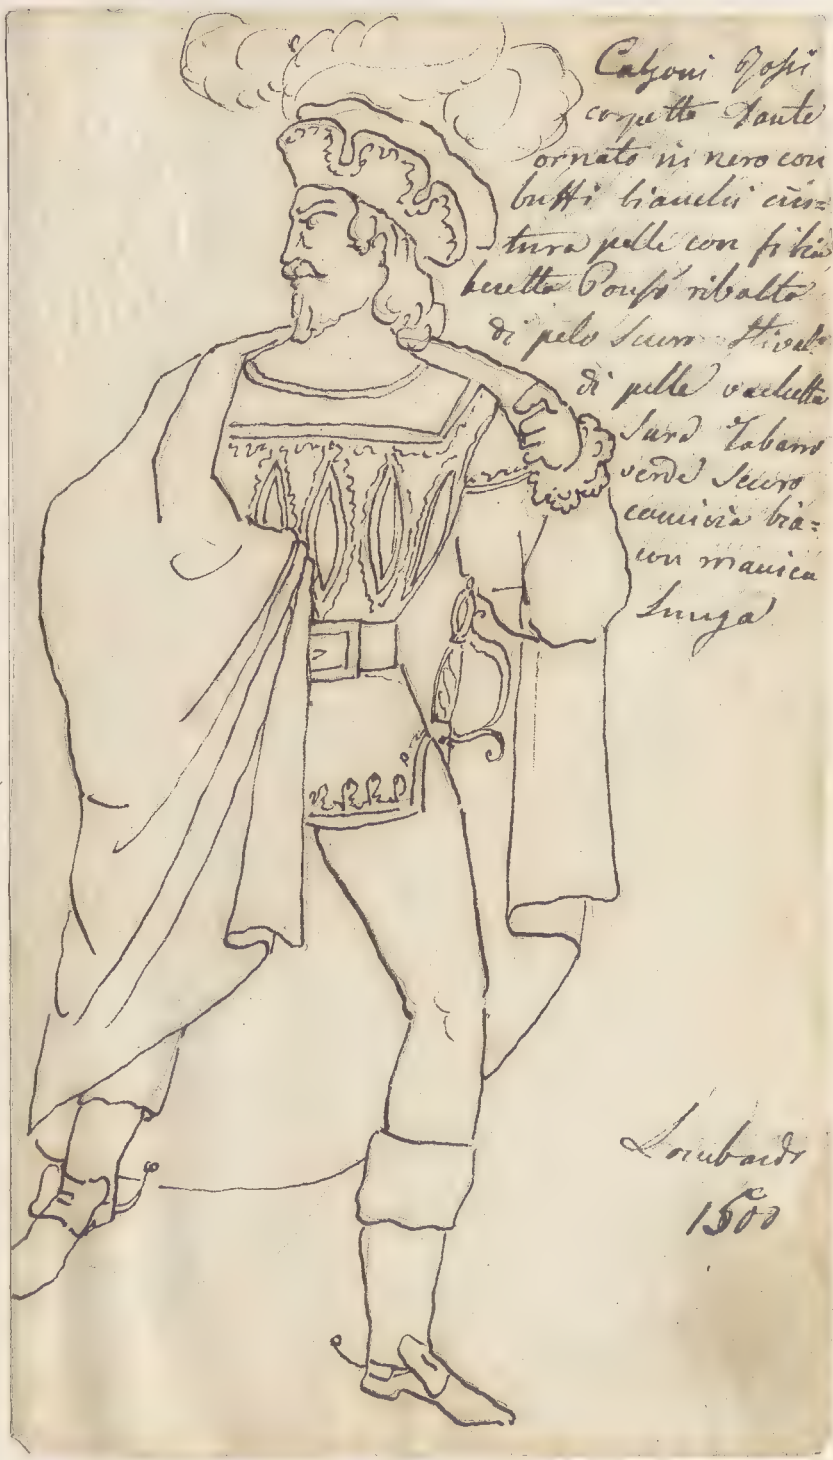 Calzoni Rossi
corpetto Dante
ornato in nero con
buffi bianchi cin=
tura pelle con fibia
beretta Ponsò ribalta
di pelo scuro Stival
di pelle vachetta
Tabarro
verde scuro
camicia bia=
con manica
lunga
Lombardo
1500